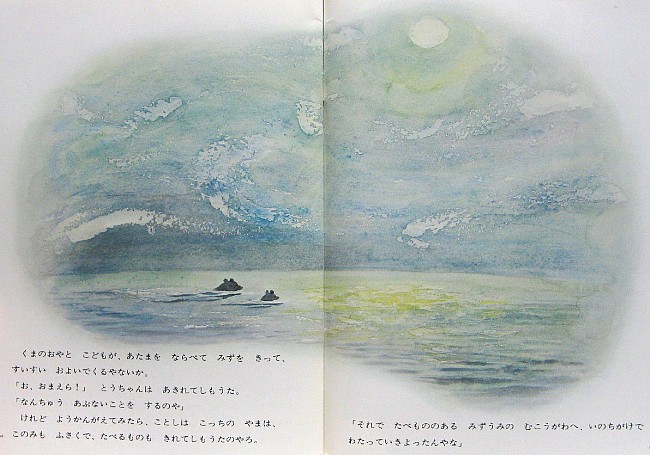 くまのおやと　こどもが、あたまを　ならべて　みずを　きって、
すいすい　およいでくるやないか。
「お、おまえら！」　とうちゃんは　あきれてしもうた。
「なんちゅう　あぶないことを　するのや」
けれど　ようかんがえてみたら、ことしは　こっちの　やまは、
このみも　ふさくで、たべるものも　きれてしもうたのやろ。
「それで　たべもののある　みずうみの　むこうがわへ、いのちがけで
わたっていきよったんやな」